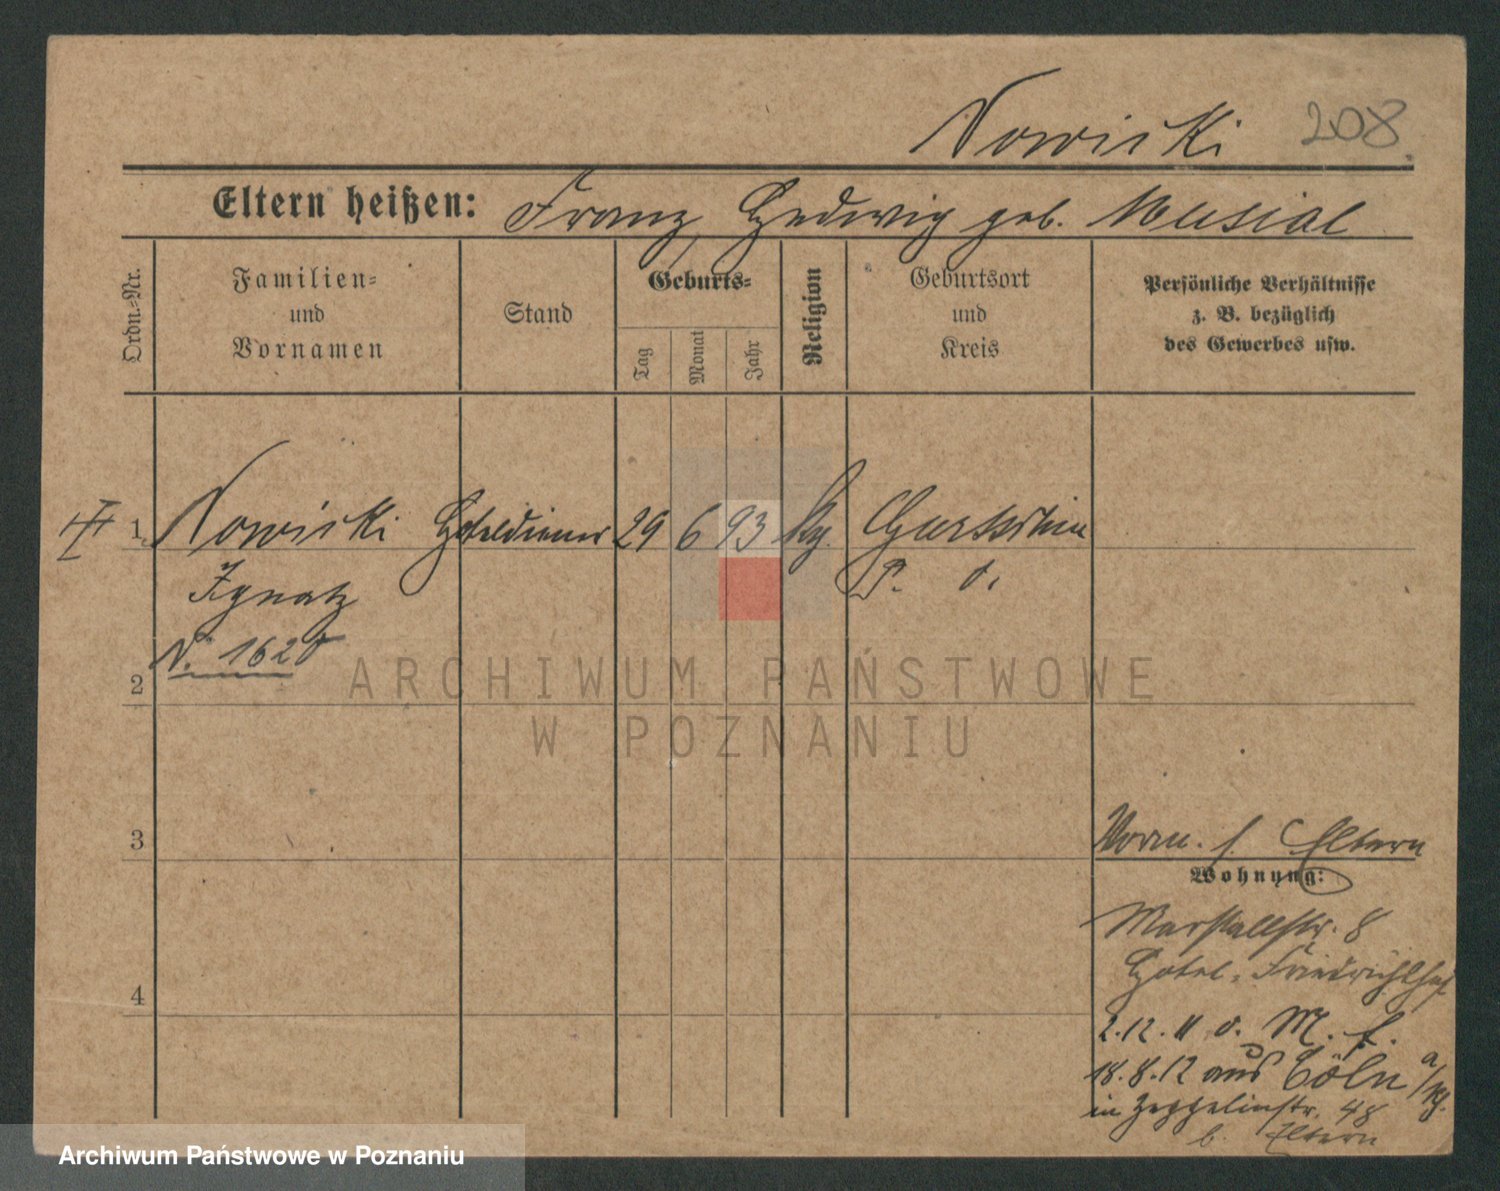 Nowicki 208
Eltern heißen: Franz, Hedwig geb. Musial
Ordn.-Nr.
Familien-
und
Vornamen
Stand
Geburts-
Tag
Monat
Jahr
Religion
Geburtsort
und
Kreis
Persönliche Verhältnisse
z. B. bezüglich
des Gewerbes usw.
1 Nowicki Hoteldiener 29 6 93
Ignatz P. O.
N. 1620
2
3
4
Vorm. s. Eltern
Wohnung:
Marstallstr. 8
Hotel
2.12.11 v. M. f.
18.8.12 aus Cöln a/Rh.
in Zeppelinstr. 48
b. Eltern
ARCHIWUM PAŃSTWOWE
W POZNANIU
Archiwum Państwowe w Poznaniu